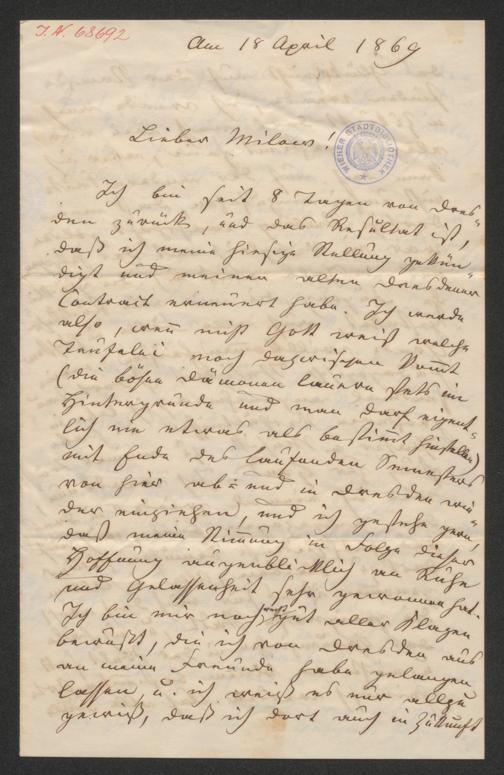 I.N. 68692
Am 18 April 1869
WIENER STADTBIBLIOTHEK
Lieber Milow!
Ich bin seit 8 Tagen von Dres-
den zurück, und das Resultat ist,
daß ich meine hiesige Stellung gekün-
digt und meinen alten Dresdener
Contract erneuert habe. Ich werde
also, wenn nicht Gott weiß welche
Teufelei noch dazwischen kommt
(die bösen Dämonen lauern stets im
Hintergrunde und man darf eigent-
lich nie etwas als bestimmt hinstellen)
mit Ende des laufenden Semesters
von hier ab- und in Dresden wie-
der einziehen, und ich gestehe gern,
daß meine Stimmung in Folge dieser
Hoffnung augenblicklich an Ruhe
und Gelassenheit sehr gewonnen hat.
Ich bin mir noch recht gut aller Klagen
bewußt, die ich von Dresden aus
an meine Freunde habe gelangen
lassen, u. ich weiß es nur allzu
gewiß, daß ich dort auch in Zukunft